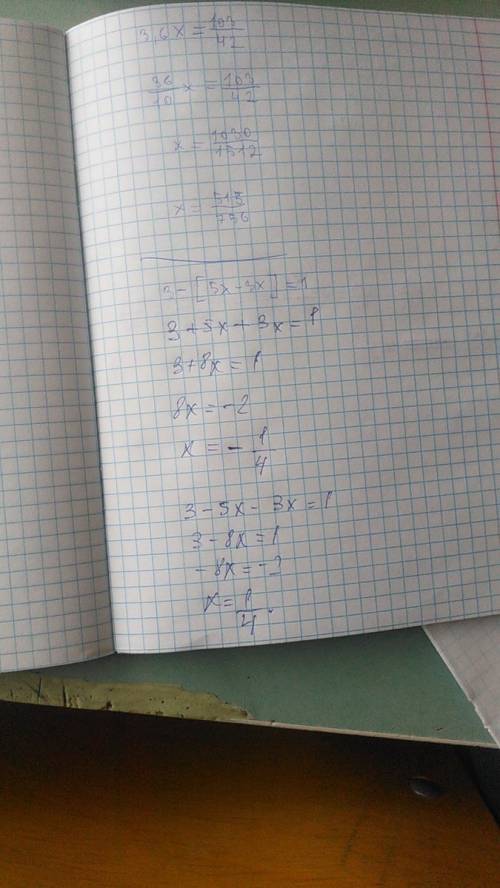 3,6x = 103/42
36/10 x = 103/42
x = 1030/1512
x = 515/756
3 - [5x - 3x] = 1
3 + 5x + 3x = 1
3 + 8x = 1
8x = -2
x = - 1/4
3 - 5x - 3x = 1
3 - 8x = 1
- 8x = -2
x = 1/4.